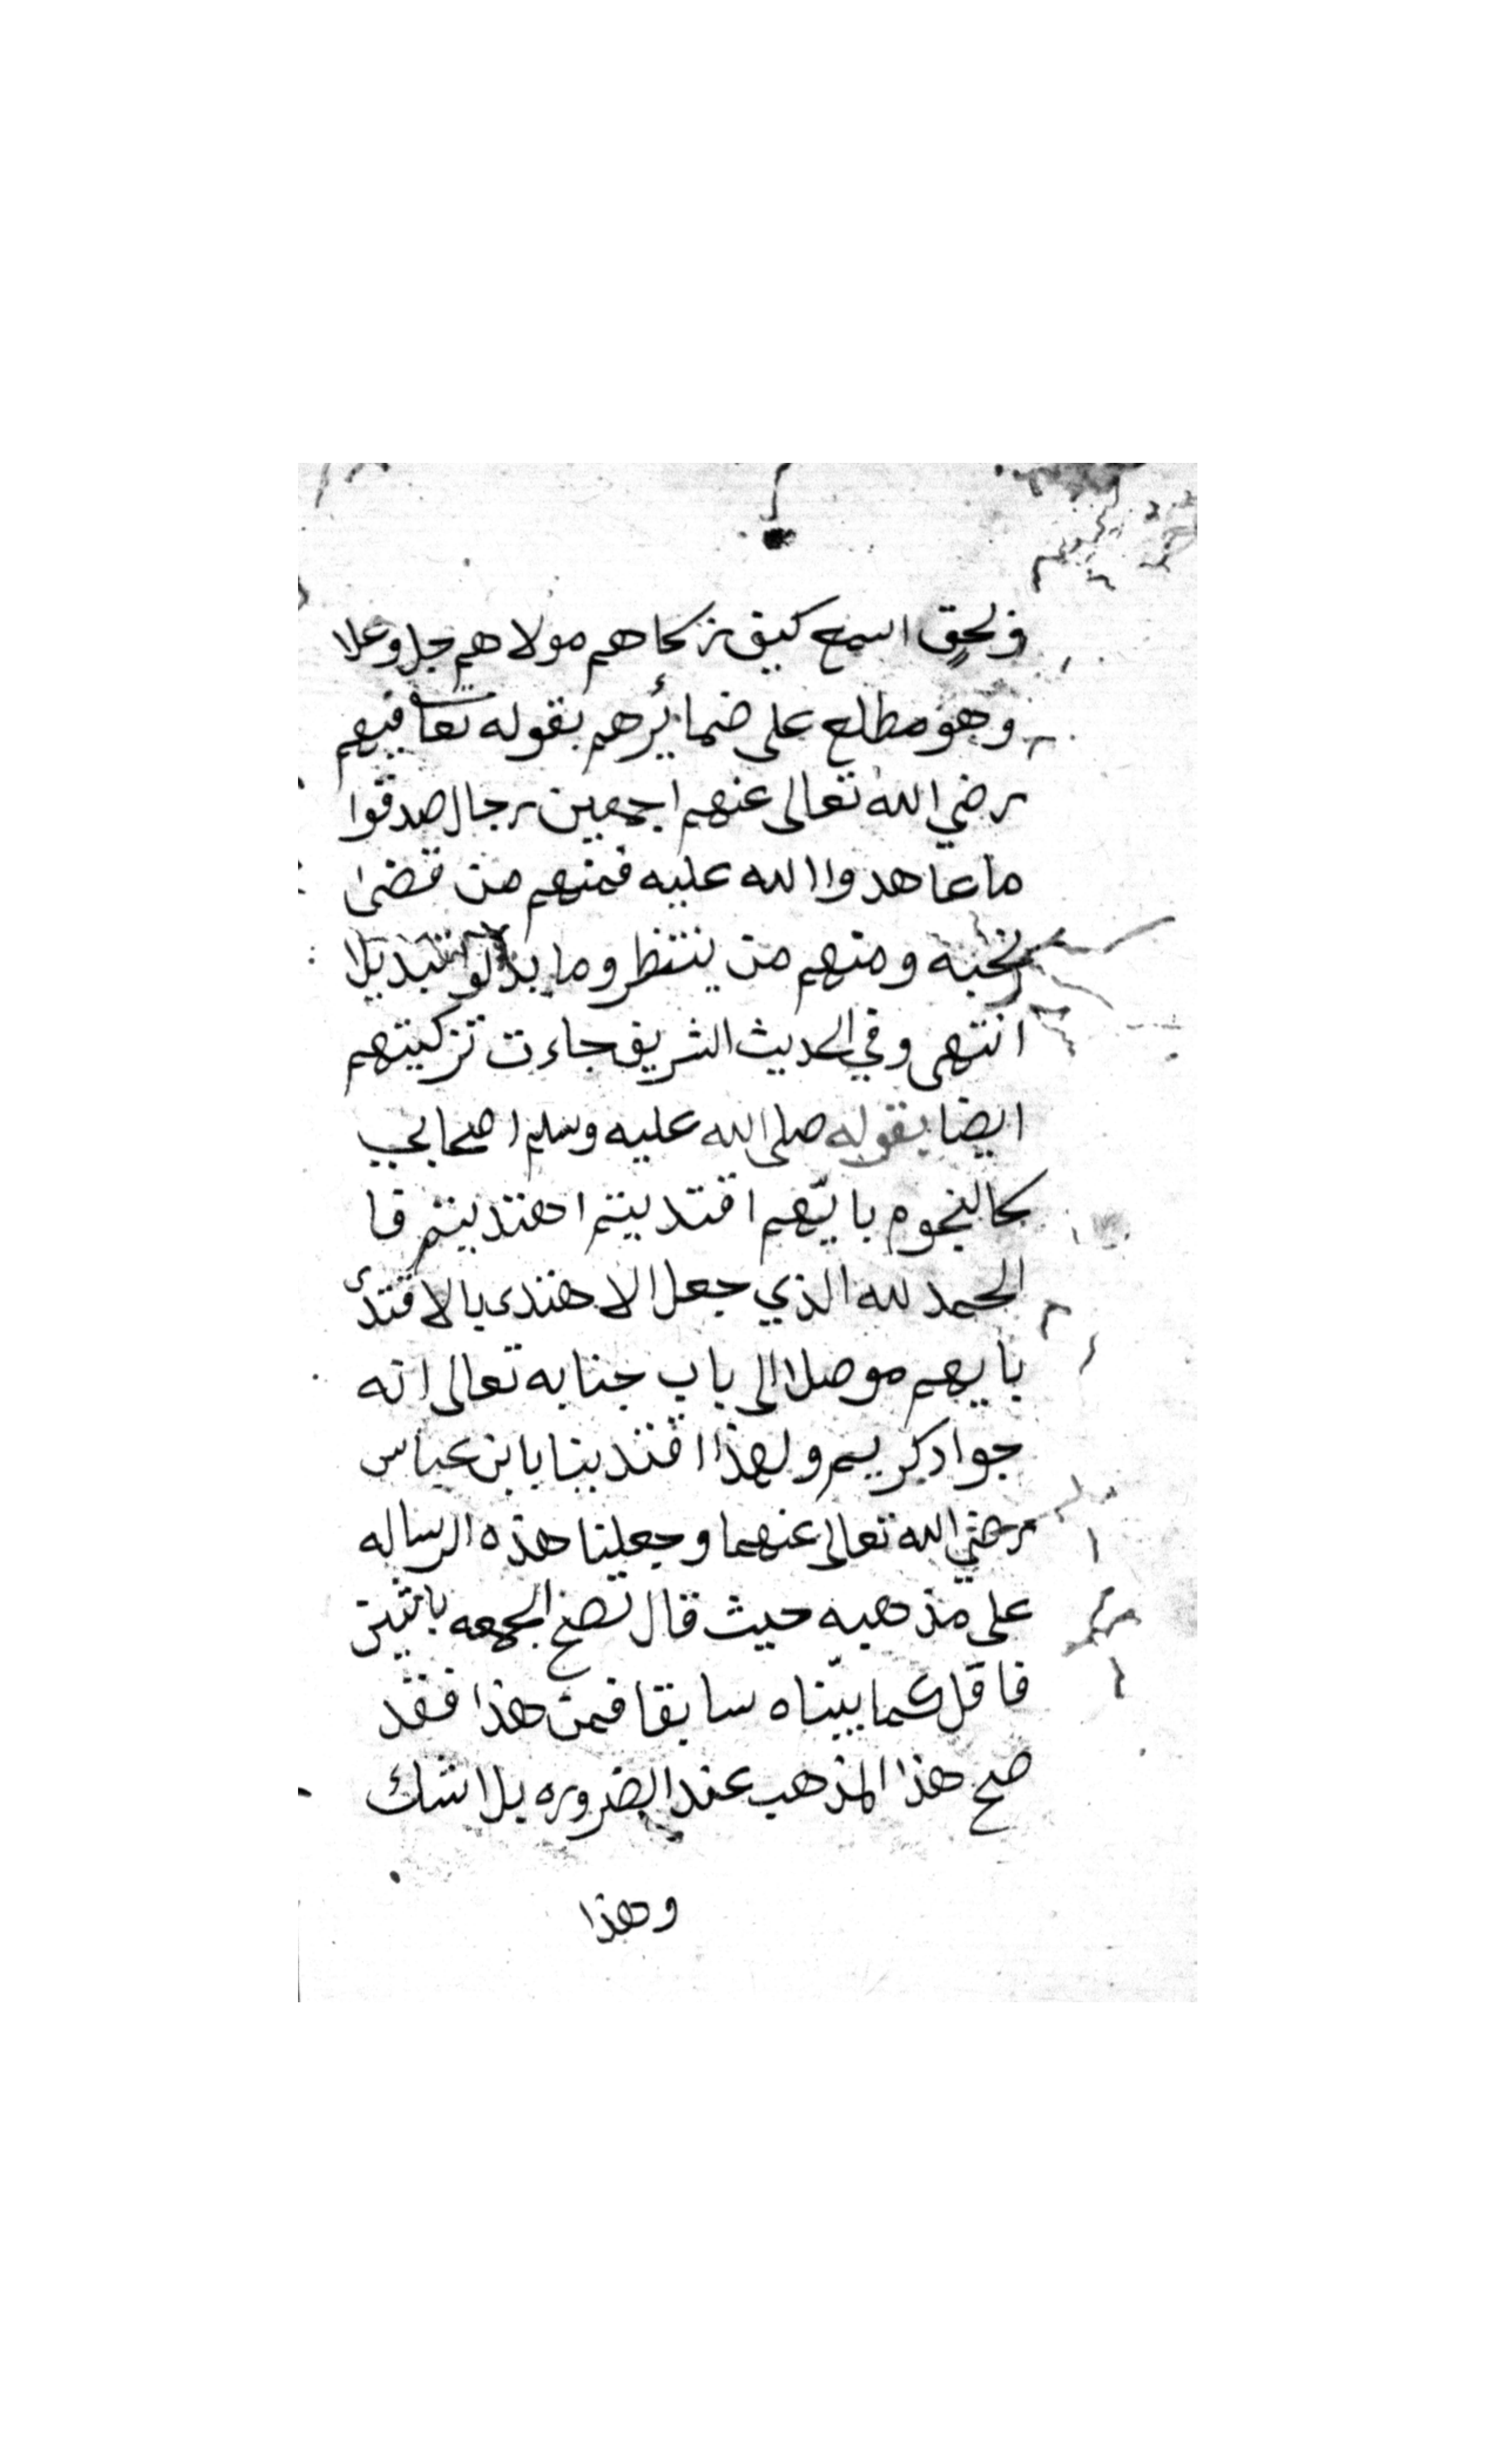 فلحق اسمع كيف زكاهم مولاهم جل وعلا
وهو مطلع على ضمائرهم بقوله تعا فيهم
رضي الله تعالى عنهم اجمعين رجال صدقوا
ما عاهدوا الله عليه فمنهم من قضى
نحبه ومنهم من ينتظر وما بدلوا تبديلا
انتهى وفي الحديث الشريف جاءت تزكيتهم
ايضا بقوله صلى الله عليه وسلم اصحابي
كالنجوم بايّهم اقتديتم اهتديتم فا
الحمد لله الذي جعل الاهتدى بالاقتدى
بايهم موصلا الى باب جنابه تعالى انه
جواد كريم ولهذا اقتدينا بابن عباس
رضي الله تعالى عنهما وجعلنا هذه الرساله
على مذهبه حيث قال تصح الجمعه باثنين
فاقل كما بيّناه سابقا فمن هذا فقد
صح هذا المذهب عند الضروره بلا شك
وهذا